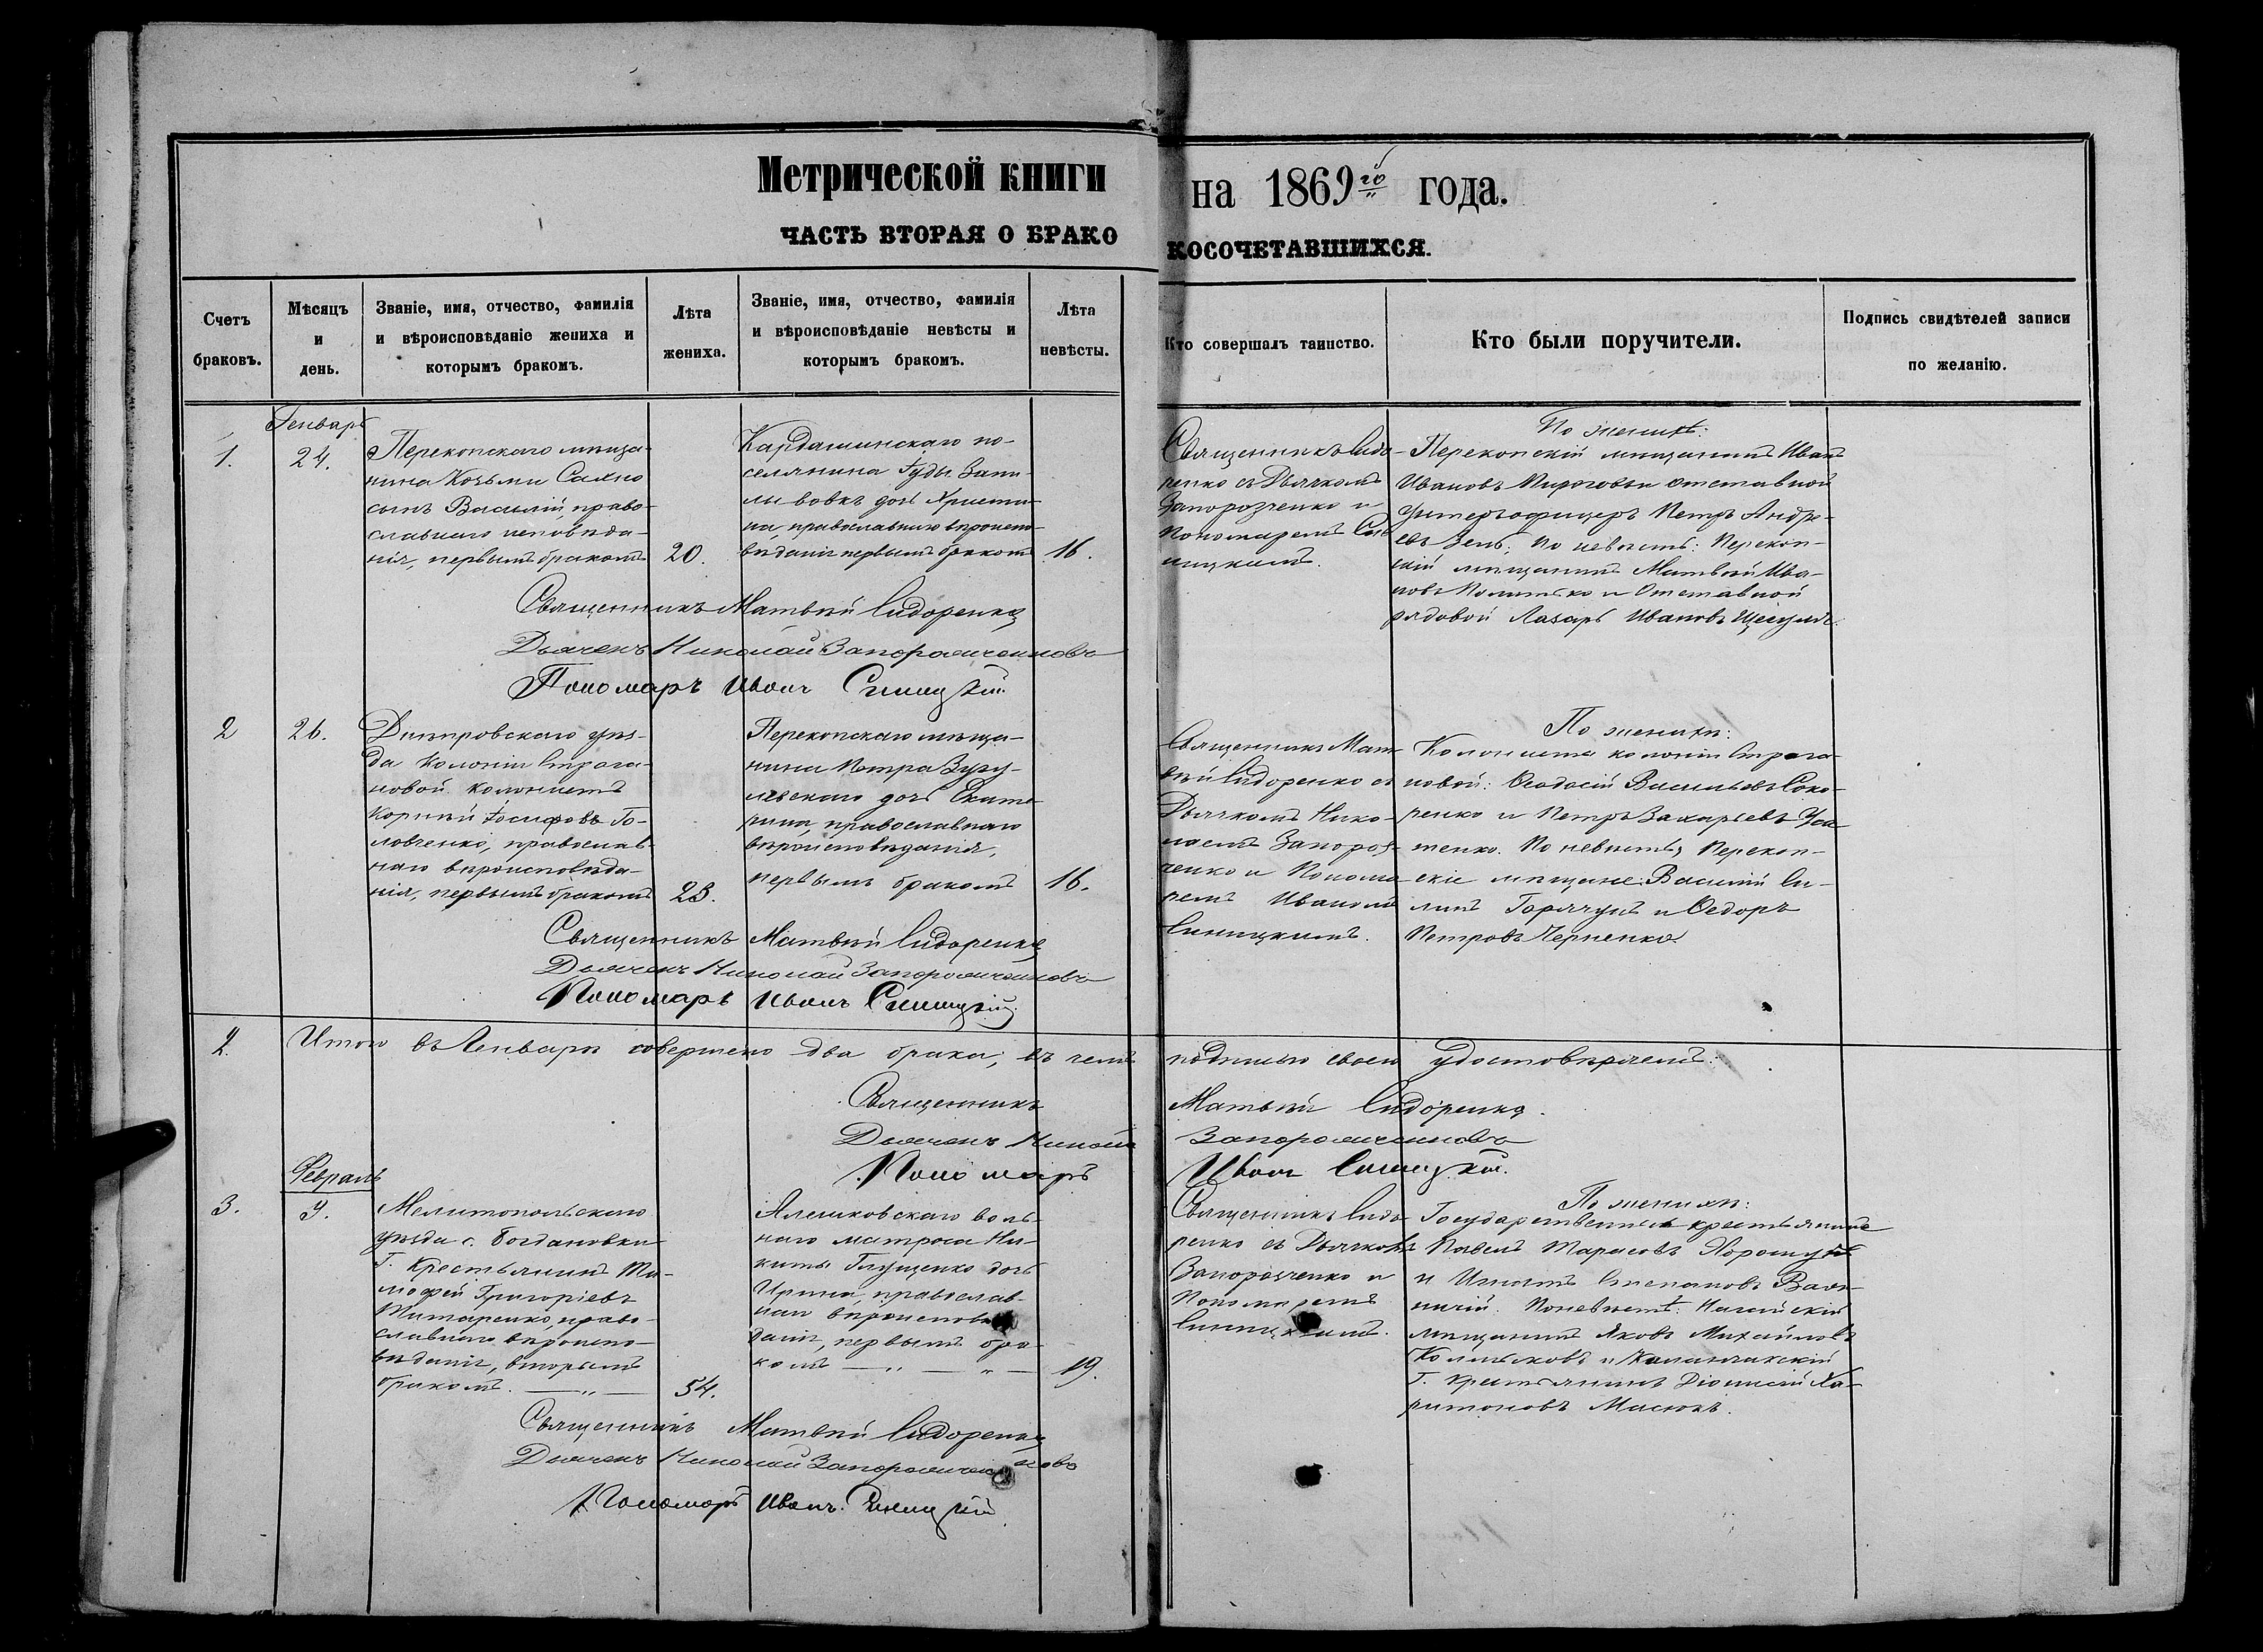 Метрической книги на 1869го года.
ЧАСТЬ ВТОРАЯ О БРАКО КОСОЧЕТАВШИХСЯ.
Счетъ браковъ.
Мѣсяцъ и день.
Званіе, имя, отчество, фамилія
и вѣроисповѣданіе жениха и
которымъ бракомъ.
Лѣта жениха.
Званіе, имя, отчество, фамилія
и вѣроисповѣданіе невѣсты и
которымъ бракомъ.
Лѣта невѣсты.
Кто совершалъ таинство.
Кто были поручители.
Подпись свидѣтелей записи
по желанію.
Генварь
1.
24.
Перекопскаго мѣща-
нина Козьмы Сахно
сынъ Василій, право-
славнаго исповѣда-
нія, первымъ бракомъ
20.
Кардашинскаго по-
селянина
дочь Христи-
на, православнаго вѣроиспо-
вѣданія первымъ бракомъ
16.
Священникъ Сидо-
ренко съ Дьячкомъ
Запорозченко и
Пономаремъ Си-
ницкимъ.
По женихѣ:
Перекопскій мѣщанинъ Иванъ
Ивановъ и отставной
унтеръофицеръ Петръ Андре-
евъ По невѣстѣ: Перекоп-
скій мѣщанинъ Матвѣй Ива-
новъ и Отставной
рядовой Лазарь Ивановъ
Священникъ Матвѣй Сидоренко
Дьячекъ Николай Запорожченковъ
Пономарь Иванъ Синицкій
2
26.
Днѣпровскаго уѣз-
да Колоніи Строга-
новой колонистъ
Корнѣй Іосифовъ Го-
ловченко, православ-
наго вѣроисповѣда-
нія, первымъ бракомъ
23.
Перекопскаго мѣща-
нина Петра
дочь Екате-
рина, православнаго
вѣроисповѣданія,
первымъ бракомъ
16.
Священникъ Мат-
вѣй Сидоренко съ
Дьячкомъ Нико-
лаемъ Запороз-
ченко и Понома-
ремъ Иваномъ
Синицкимъ.
По женихѣ:
Колонисты колоніи Строга-
новой: Ѳеодосій Васильевъ
и Петръ Захарьевъ
По невѣстѣ, Перекоп-
скіе мѣщане: Василій
и Ѳедоръ
Петровъ Черненко.
Священникъ Матвѣй Сидоренко
Дьячекъ Николай Запорожченковъ
Пономарь Иванъ Синицкій
2. Итого въ Генварѣ совершено два брака, въ чемъ подписью своею удостовѣряемъ:
Священникъ Матвѣй Сидоренко.
Дьячекъ Николай Запорожченковъ
Пономарь Иванъ Синицкій.
Февраль
3.
9.
Мелитопольскаго
уѣзда с. Богдановки
Г. Крестьянинъ Ти-
моѳей Григоріевъ
Титаренко, право-
славнаго вѣроиспо-
вѣданія, вторымъ
бракомъ. — „ —
54.
Алешковскаго воль-
наго матроса Ни-
киты Глущенко дочь
Ирина, православ-
наго вѣроисповѣ-
данія, первымъ бра-
комъ — „ — „ —
19.
Священникъ Сидо-
ренко съ Дьячкомъ
Запорозченко и
Пономаремъ
Синицкимъ.
По женихѣ:
Государственные крестьянине
Павелъ Тарасовъ
и Игнатъ Степановъ
По невѣстѣ: Ногайскій
мѣщанинъ Яковъ Михайловъ
и Каланчакскій
Г. Крестьянинъ Діонисій Ха-
ритоновъ Масюкъ.
Священникъ Матвѣй Сидоренко
Дьячекъ Николай Запорожченковъ
Пономарь Иванъ Синицкій.